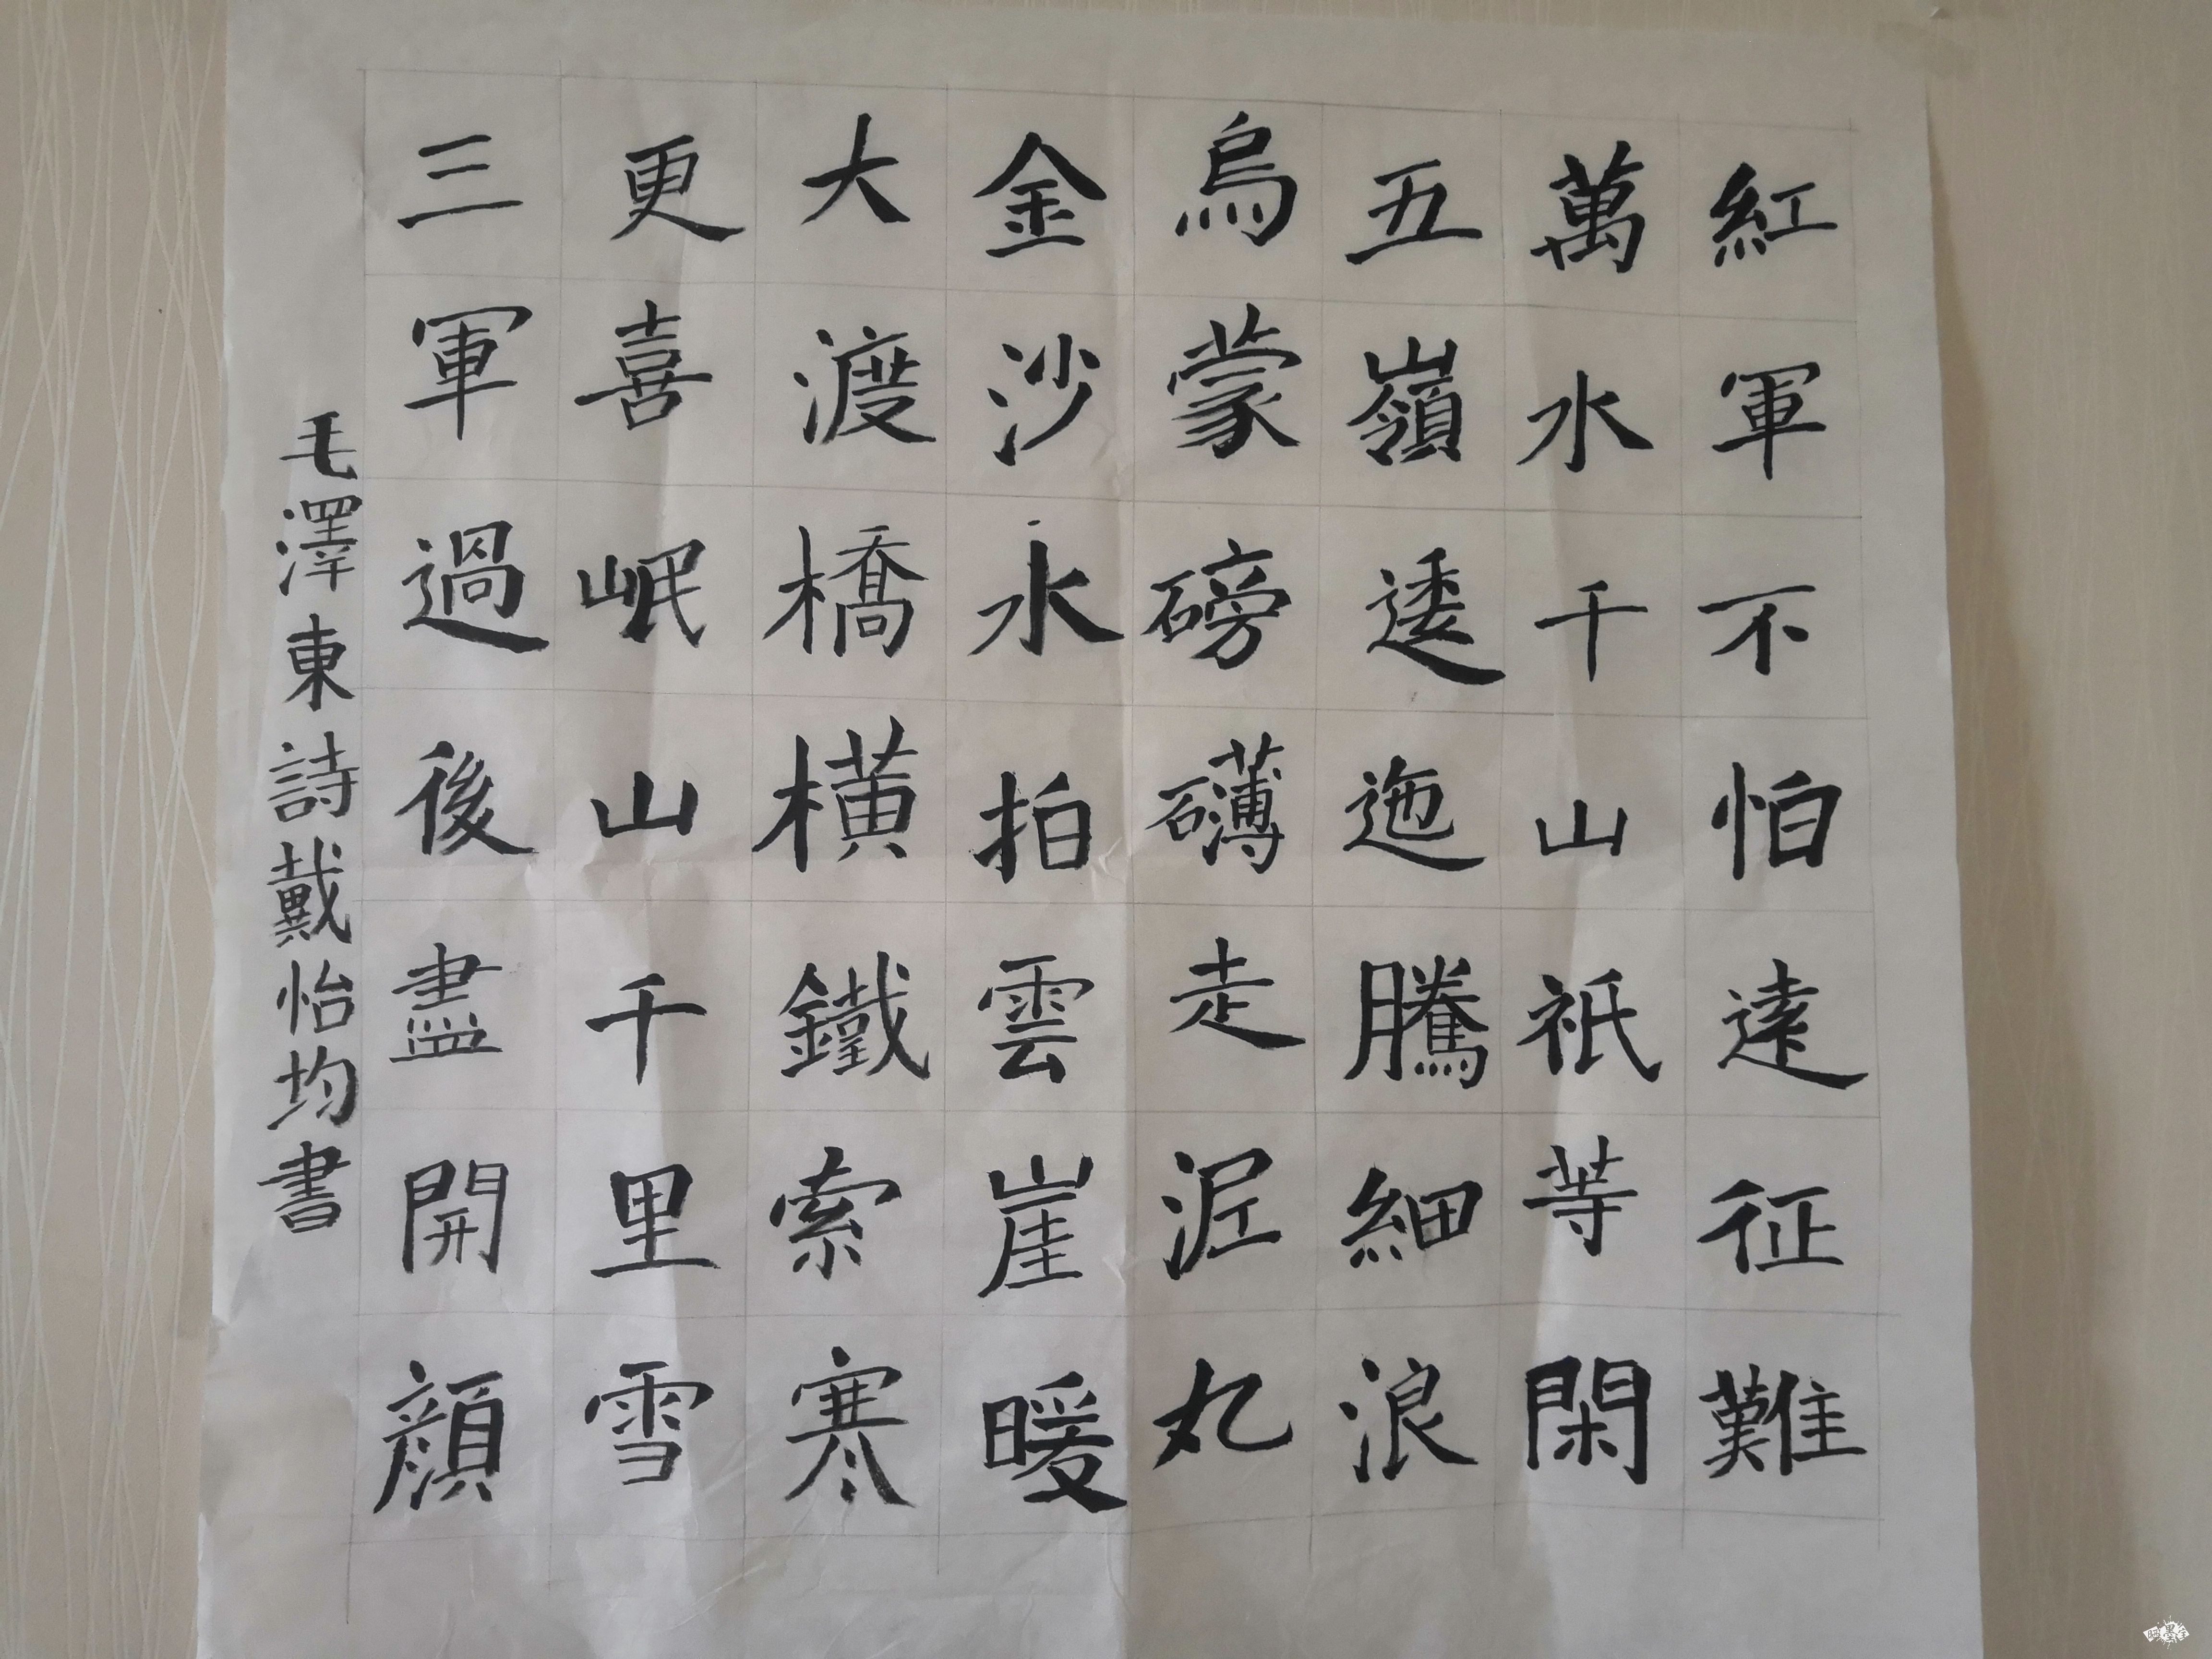 紅軍不怕遠征難
萬水千山祇等閑
五嶺逶迤騰細浪
烏蒙磅礴走泥丸
金沙水拍雲崖暖
大渡橋橫鐵索寒
更喜岷山千里雪
三軍過後盡開顏
毛澤東詩戴怡均書